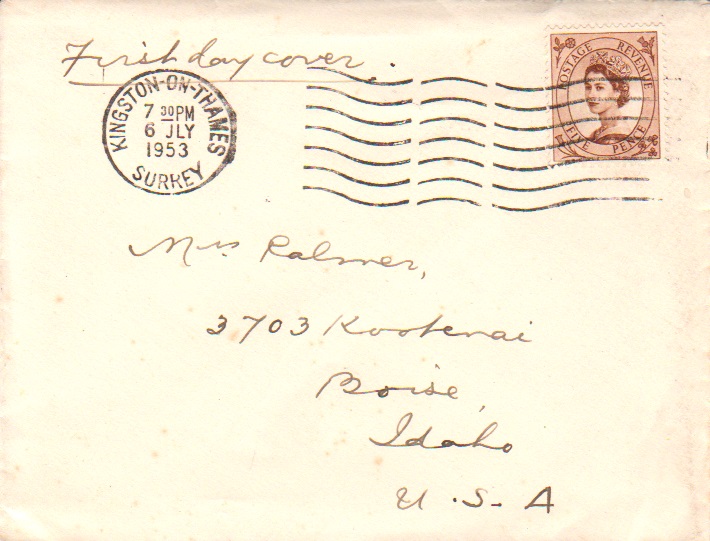 First day cover.
KINGSTON-ON-THAMES
7 30PM
6 JLY
1953
SURREY
POSTAGE REVENUE
FIVE PENCE
Mrs Palmer,
3703 Kootenai
Boise,
Idaho
U.S.A